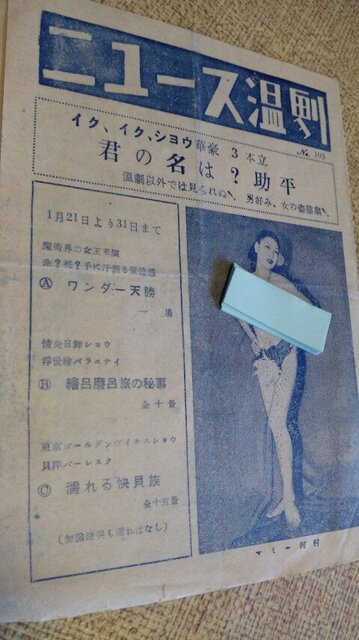 ニュース温劇
No. 103
イク、イク、ショウ豪華 3 本立
君の名は?助平
温劇以外では見られぬ、男好み、女の姿態集、
1月21日より31日まて
魔術界の女王来演
生?死?手に汗握る
Ⓐ ワンダー天勝
一 場
情炎日録ショウ
浮世絵バラエテイ
Ⓑ 繪呂磨呂旅の秘事
全十景
東京ゴールデンヴイナスショウ
貝洋バーレスク
Ⓒ 濡れる快貝族
全十五景
マミー河村